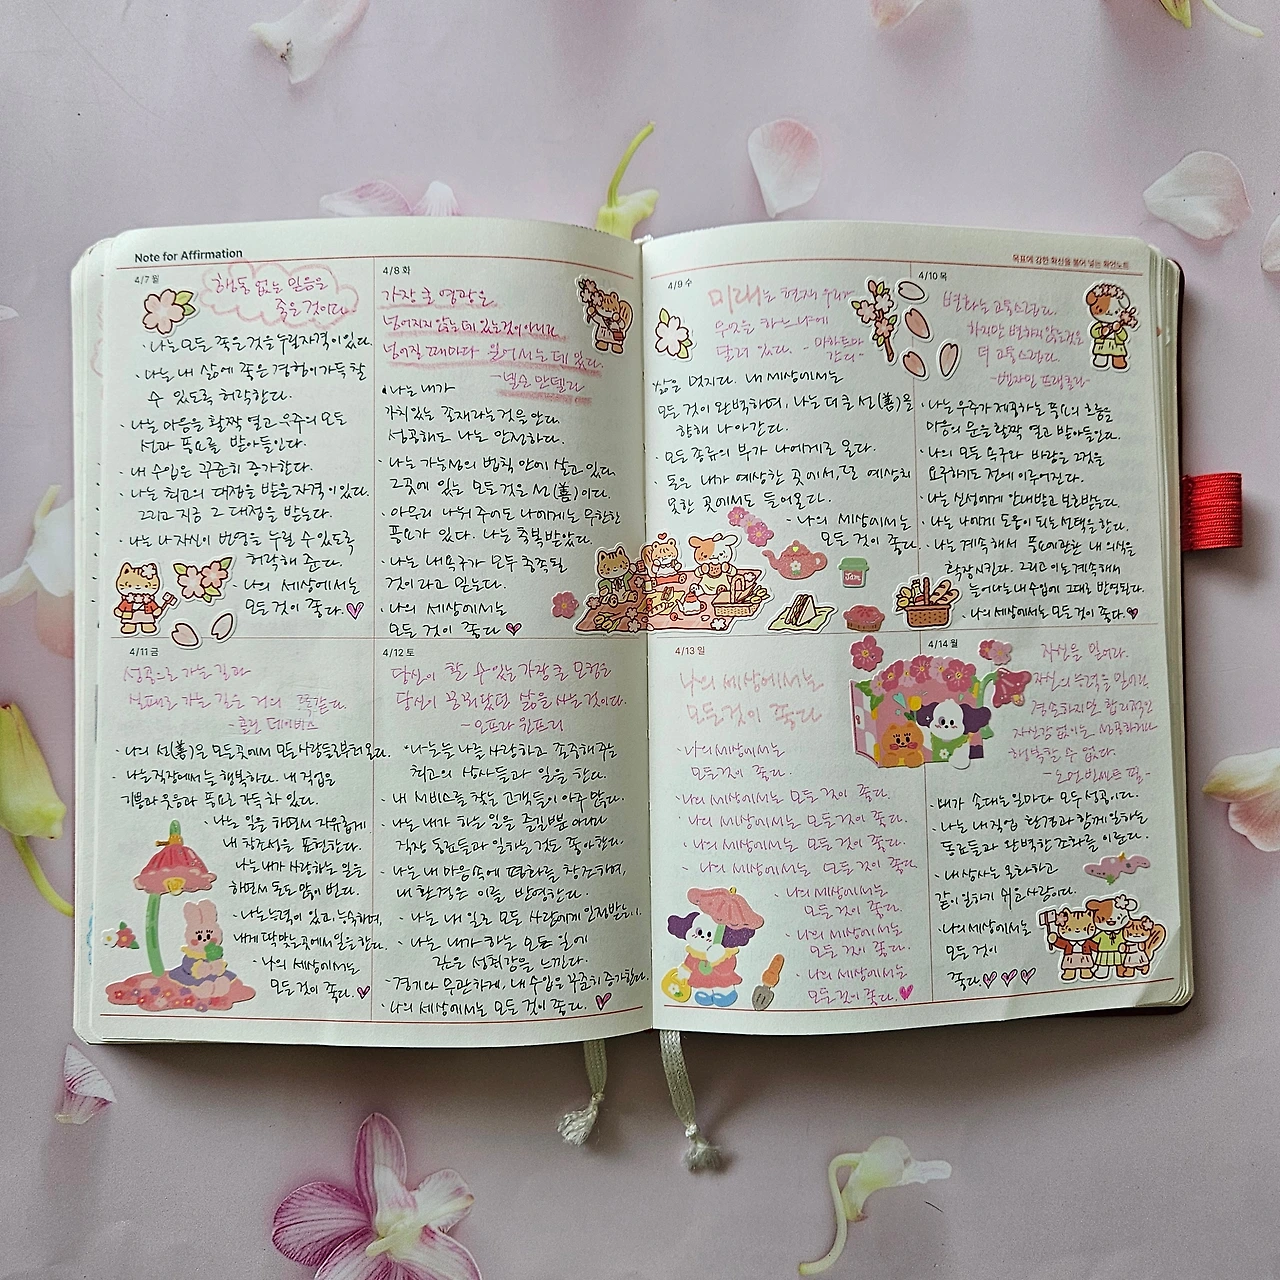 Note for Affirmation
4/7 월
행동 없는 믿음은
죽은 것이다.
· 나는 모든 좋은 것을 누릴 자격이 있다.
· 나는 내 삶에 좋은 경험이 가득할
수 있도록 허락한다.
· 나는 마음을 활짝 열고 우주의 모든
선과 풍요를 받아들인다.
· 내 수입은 꾸준히 증가한다.
· 나는 최고의 대접을 받을 자격이 있다.
그리고 지금 그 대접을 받는다.
· 나는 나 자신이 번영을 누릴 수 있도록
허락해 준다.
· 나의 세상에서는
모든 것이 좋다.
4/8 화
가장 큰 영광은
넘어지지 않는 데 있는 것이 아니라
넘어질 때마다 일어서는 데 있다.
-넬슨 만델라
· 나는 내가
가치있는 존재라는 것을 안다.
성공해도 나는 안전하다.
· 나는 가능성의 법칙 안에 살고 있다.
그곳에 있는 모든 것은 선(善)이다.
· 아무리 나눠 주어도 나에게는 무한한
풍요가 있다. 나는 축복받았다.
· 나는 내 욕구가 모두 충족될
것이라고 믿는다.
· 나의 세상에서는
모든 것이 좋다
4/9 수
미래는 현재 우리가
무엇을 하는가에
달려 있다. - 마하트마
간디 -
삶은 멋지다. 내 세상에서는
모든 것이 완벽하며, 나는 더 큰 선(善)을
향해 나아간다.
· 모든 종류의 부가 나에게로 온다.
· 돈은 내가 예상한 곳에서, 또 예상치
못한 곳에서도 들어온다.
· 나의 세상에서는
모든 것이 좋다.
목표에 강한 확신을 불어 넣는 확언노트
4/10 목
변화는 고통스럽다.
하지만 변하지 않는 것은
더 고통스럽다.
-벤자민 프랭클린-
· 나는 우주가 제공하는 풍요의 흐름을
마음의 문을 활짝 열고 받아들인다.
· 나의 모든 욕구와 바람은 그것을
요구하기도 전에 이루어진다.
· 나는 신성에게 안내받고 보호받는다.
· 나는 나에게 도움이 되는 선택을 한다.
· 나는 계속해서 풍요에 관한 내 의식을
확장시킨다. 그리고 이는 계속해서
늘어나는 내 수입에 그대로 반영된다.
· 나의 세상에서는 모든 것이 좋다.
4/11 금
성공으로 가는 길과
실패로 가는 길은 거의 똑같다.
-콜린 데이비스
· 나의 선(善)은 모든 곳에서 모든 사람들로부터 온다.
· 나는 직장에서 늘 행복하다. 내 직업은
기쁨과 웃음과 풍요로 가득 차 있다.
· 나는 일을 하면서 자유롭게
내 창조성을 표현한다.
나는 내가 사랑하는 일을
하면서 돈도 많이 번다.
· 나는 능력이 있고, 능숙하며,
내게 딱 맞는 곳에서 일을 한다.
· 나의 세상에서는
모든 것이 좋다.
4/12 토
당신이 할 수 있는 가장 큰 모험은
당신이 꿈꿔왔던 삶을 사는 것이다.
-오프라 윈프리
· 나는 늘 나를 사랑하고 존중해 주는
최고의 상사들과 일을 한다.
· 내 서비스를 찾는 고객들이 아주 많다.
· 나는 내가 하는 일을 즐길 뿐 아니라
직장 동료들과 일하는 것도 좋아한다.
· 나는 내 마음속에 평화를 창조하며,
내 환경은 이를 반영한다.
· 나는 내 일로 모든 사람에게 인정받는다.
· 나는 내가 하는 모든 일에
깊은 성취감을 느낀다.
· 경기와 무관하게, 내 수입은 꾸준히 증가한다.
· 나의 세상에서는 모든 것이 좋다.
4/13 일
나의 세상에서는
모든 것이 좋다
· 나의 세상에서는
모든 것이 좋다.
· 나의 세상에서는 모든 것이 좋다.
· 나의 세상에서는 모든 것이 좋다.
· 나의 세상에서는 모든 것이 좋다.
· 나의 세상에서는 모든 것이 좋다
· 나의 세상에서는
모든 것이 좋다.
· 나의 세상에서는
모든 것이 좋다.
· 나의 세상에서는
모든 것이 좋다.
4/14 월
자신을 믿어라.
자신의 능력을 믿어라.
겸손하지만 합리적인
자신감 없이는 성공하거나
행복할 수 없다.
-노먼 빈센트 필-
· 내가 손대는 일마다 모두 성공이다.
· 나는 내 직업 환경과 함께 일하는
동료들과 완벽한 조화를 이룬다.
· 내 상사는 온화하고
같이 일하기 쉬운 사람이다.
· 나의 세상에서는
모든 것이
좋다.
Jam